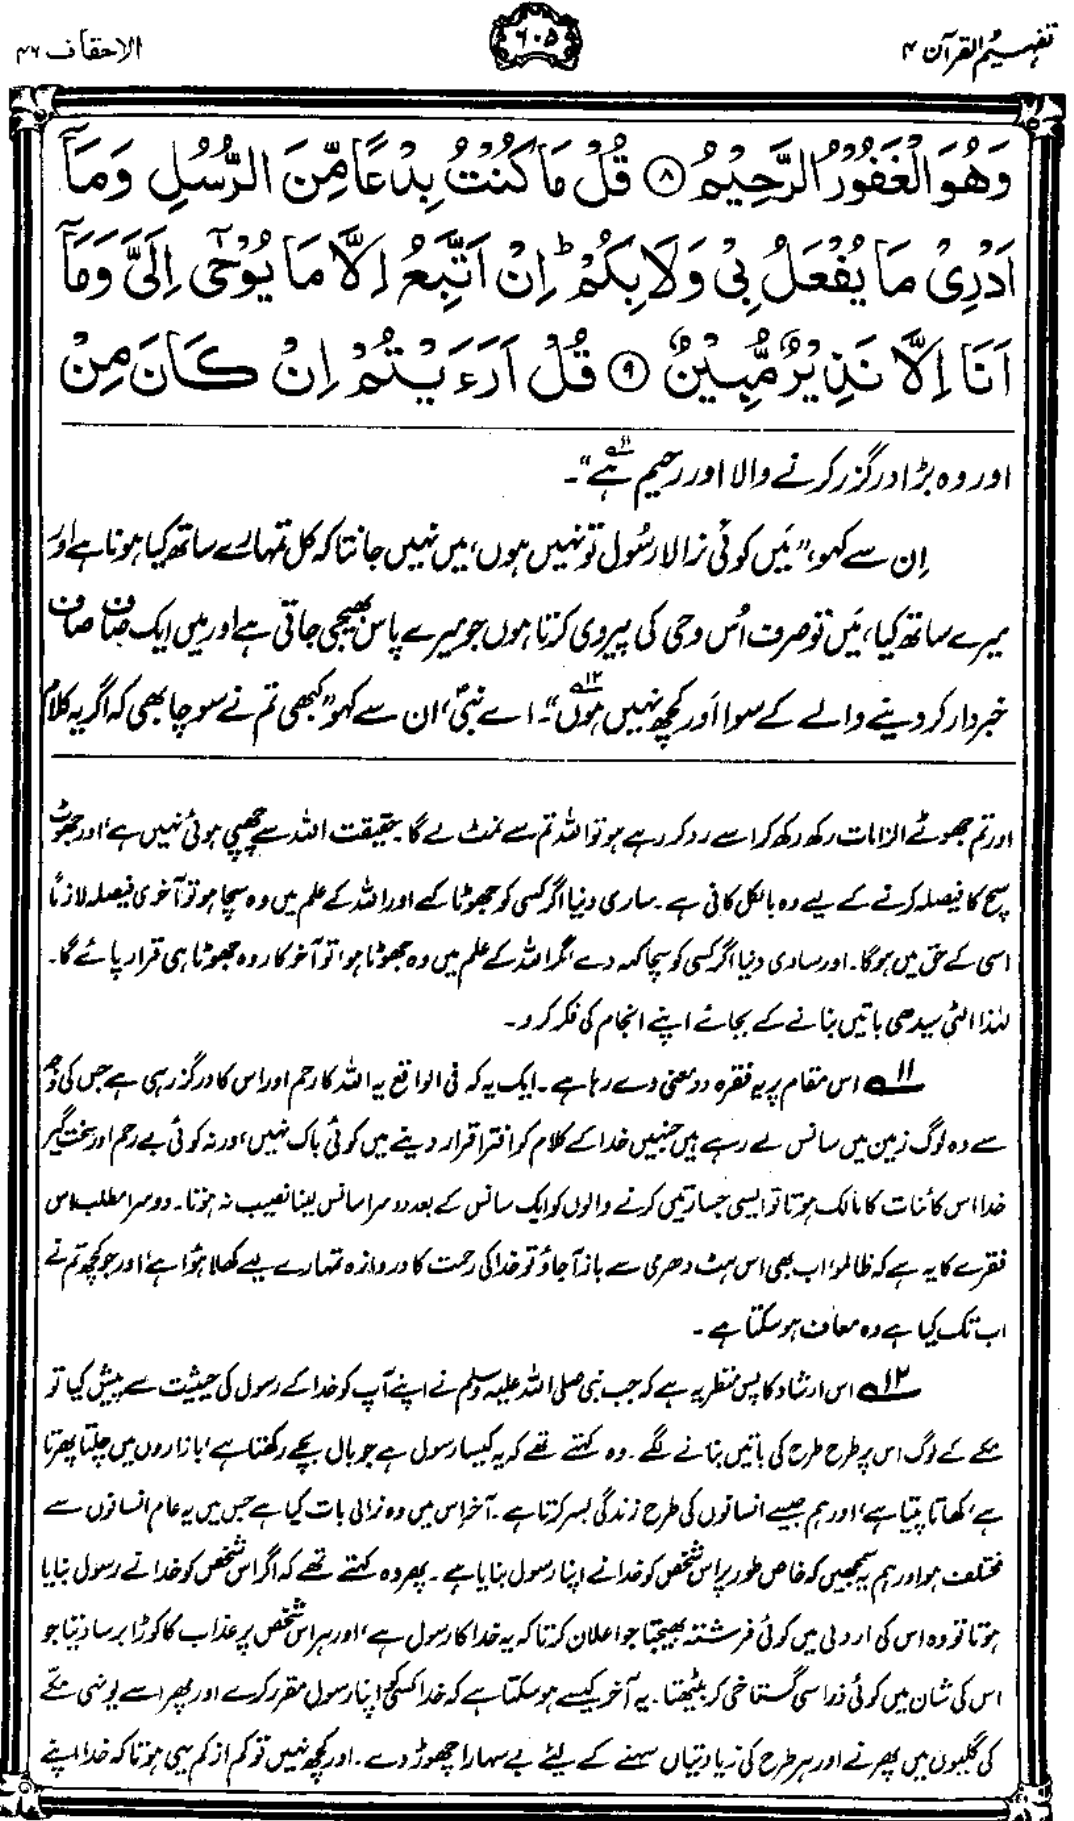 تفہیم القرآن ۴
۶۰۵
الاحقاف ۴۶
وَهُوَ الْغَفُوْرُ الرَّحِيْمُ ۝۸ قُلْ مَا كُنْتُ بِدْعًا مِّنَ الرُّسُلِ وَمَآ
اَدْرِيْ مَا يُفْعَلُ بِيْ وَلَا بِكُمْ ؕ اِنْ اَتَّبِعُ اِلَّا مَا يُوْحٰٓى اِلَيَّ وَمَآ
اَنَا اِلَّا نَذِيْرٌ مُّبِيْنٌ ۝۹ قُلْ اَرَءَيْتُمْ اِنْ كَانَ مِنْ
اور وہ بڑا درگزر کرنے والا اور رحیم ہے۱۱؎“۔
اِن سے کہو، ”مَیں کوئی نرالا رسُول تو نہیں ہوں، میں نہیں جانتا کہ کل تمہارے ساتھ کیا ہونا ہے اور
میرے ساتھ کیا، مَیں تو صرف اُس وحی کی پیروی کرتا ہوں جو میرے پاس بھیجی جاتی ہے اور میں ایک صاف صاف
خبردار کر دینے والے کے سوا اَور کچھ نہیں ہوں۱۲؎“۔ اے نبیؐ، ان سے کہو ”کبھی تم نے سوچا بھی کہ اگر یہ کلام
اور تم جھوٹے الزامات رکھ رکھ کر اسے رد کر رہے ہو تو اللہ تم سے نمٹ لے گا۔ حقیقت اللہ سے چھپی ہوئی نہیں ہے، اور جھوٹ
سچ کا فیصلہ کرنے کے لیے وہ بالکل کافی ہے۔ ساری دنیا اگر کسی کو جھوٹا کہے اور اللہ کے علم میں وہ سچا ہو تو آخری فیصلہ لازماً
اسی کے حق میں ہوگا۔ اور ساری دنیا اگر کسی کو سچا کہہ دے مگر اللہ کے علم میں وہ جھوٹا ہو، تو آخر کار وہ جھوٹا ہی قرار پائے گا۔
لہٰذا الٹی سیدھی باتیں بنانے کے بجائے اپنے انجام کی فکر کرو۔
۱۱؎ اس مقام پر یہ فقرہ دو معنی دے رہا ہے۔ ایک یہ کہ فی الواقع یہ اللہ کا رحم اور اس کا درگزر ہی ہے جس کی وجہ
سے وہ لوگ زمین میں سانس لے رہے ہیں جنہیں خدا کے کلام کو افترا قرار دینے میں کوئی باک نہیں، ورنہ کوئی بے رحم اور سخت گیر
خدا اس کائنات کا مالک ہوتا تو ایسی جسارتیں کرنے والوں کو ایک سانس کے بعد دوسرا سانس لینا نصیب نہ ہوتا۔ دوسرا مطلب اس
فقرے کا یہ ہے کہ ظالمو، اب بھی اس ہٹ دھرمی سے باز آجاؤ تو خدا کی رحمت کا دروازہ تمہارے لیے کھلا ہوا ہے، اور جو کچھ تم نے
اب تک کیا ہے وہ معاف ہو سکتا ہے۔
۱۲؎ اس ارشاد کا پس منظر یہ ہے کہ جب نبی صلی اللہ علیہ وسلم نے اپنے آپ کو خدا کے رسول کی حیثیت سے پیش کیا تو
مکے کے لوگ اس پر طرح طرح کی باتیں بنانے لگے۔ وہ کہتے تھے کہ یہ کیسا رسول ہے جو بال بچے رکھتا ہے، بازاروں میں چلتا پھرتا
ہے، کھاتا پیتا ہے، اور ہم جیسے انسانوں کی طرح زندگی بسر کرتا ہے۔ آخر اس میں وہ نرالی بات کیا ہے جس میں یہ عام انسانوں سے
مختلف ہو اور ہم یہ سمجھیں کہ خاص طور پر اس شخص کو خدا نے اپنا رسول بنایا ہے۔ پھر وہ کہتے تھے کہ اگر اس شخص کو خدا نے رسول بنایا
ہوتا تو وہ اس کی اردلی میں کوئی فرشتہ بھیجتا جو اعلان کرتا کہ یہ خدا کا رسول ہے، اور ہر اس شخص پر عذاب کا کوڑا برسا دیتا جو
اس کی شان میں کوئی ذرا سی گستاخی کر بیٹھتا۔ یہ آخر کیسے ہو سکتا ہے کہ خدا کسی کو اپنا رسول مقرر کرے اور پھر اسے یونہی مکّے
کی گلیوں میں پھرنے اور ہر طرح کی زیادتیاں سہنے کے لیے بے سہارا چھوڑ دے۔ اور کچھ نہیں تو کم از کم یہی ہوتا کہ خدا اپنے